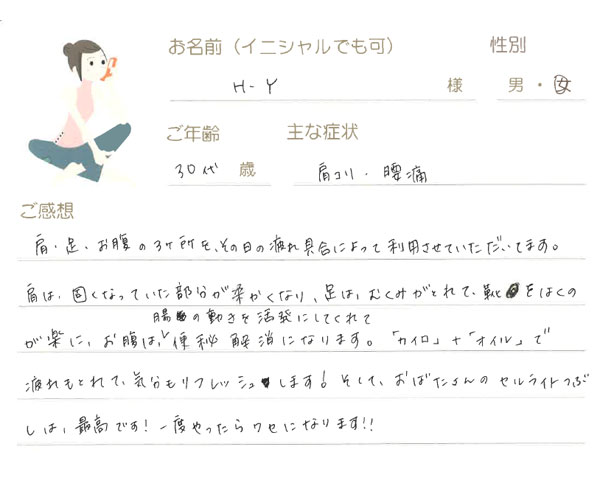 お名前（イニシャルでも可）
性別
H-Y 様
男・女
ご年齢
主な症状
30代 歳
肩コリ・腰痛
ご感想
肩・足・お腹の3ヶ所を、その日の疲れ具合によって利用させていただいてます。
肩は、固くなっていた部分が柔かくなり、足は、むくみがとれて、靴をはくの
腸の動きを活発にしてくれて
が楽に、お腹は、便秘解消になります。「カイロ」+「オイル」で
疲れもとれて、気分もリフレッシュします！そして、おばたさんのセルライトつぶ
しは、最高です！一度やったらクセになります!!